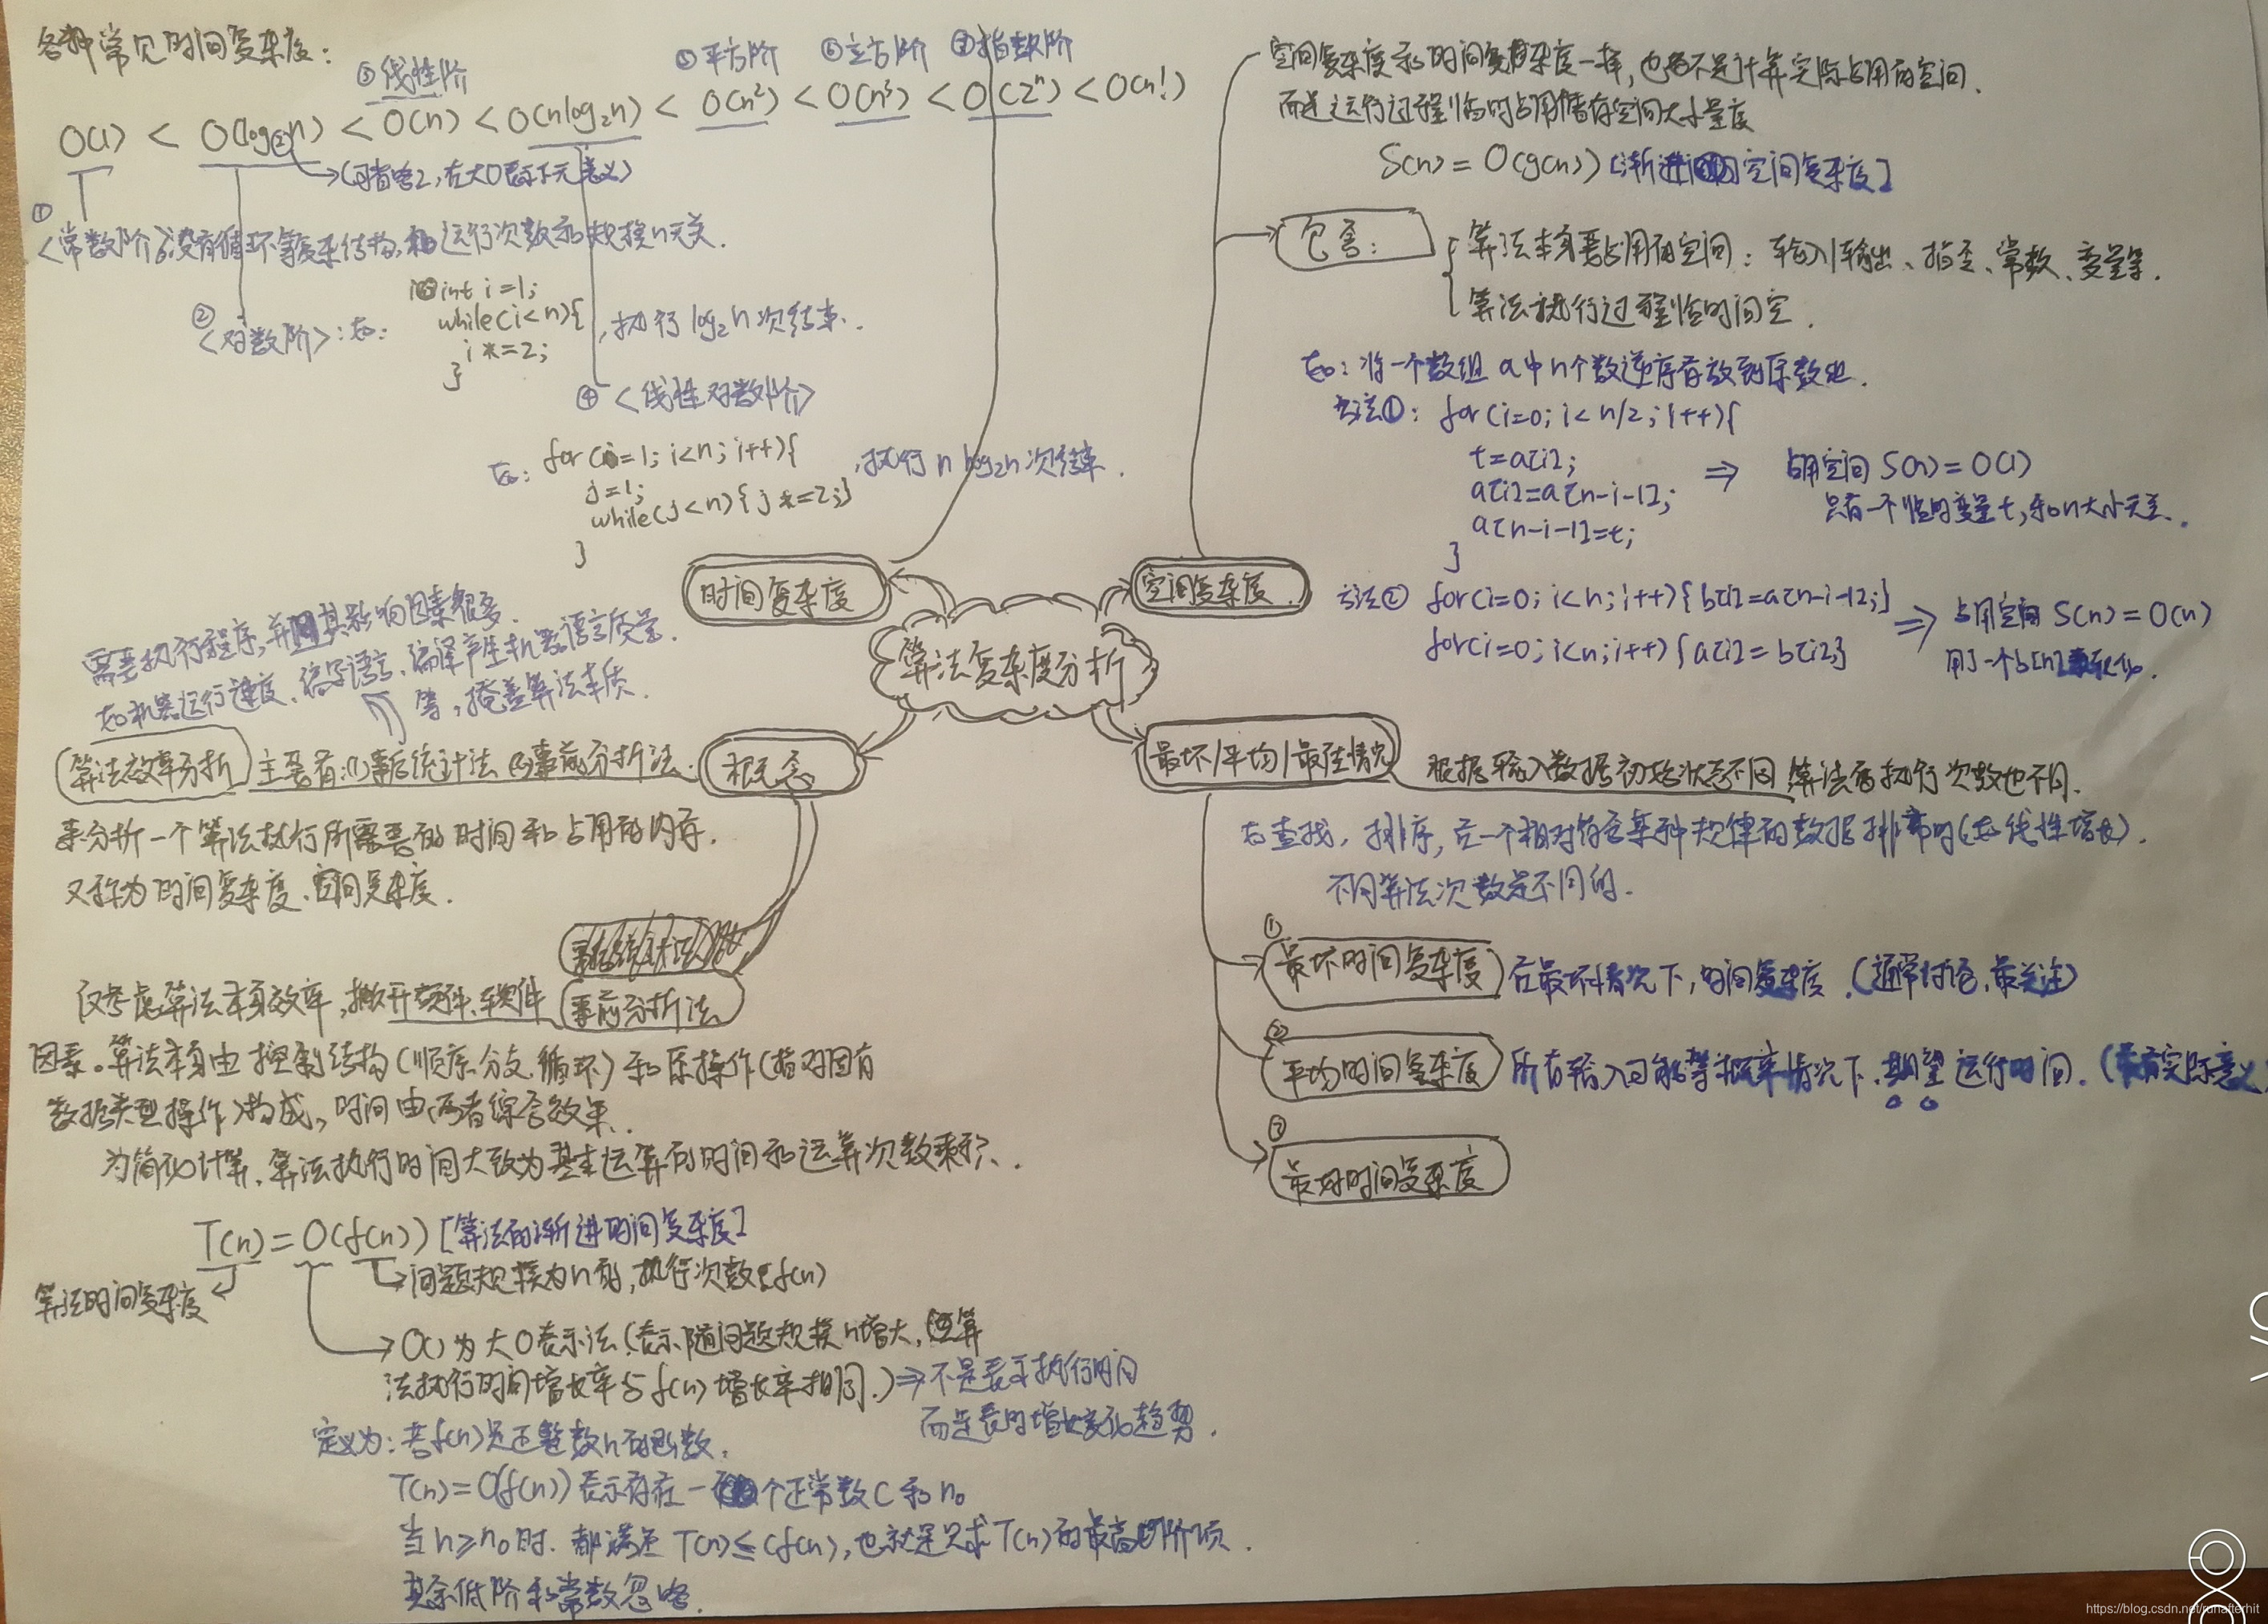 各种常见时间复杂度：
③线性阶 ⑤平方阶 ⑥立方阶 ⑦指数阶
O(1) < O(log₂n) < O(n) < O(nlog₂n) < O(n²) < O(n³) < O(2ⁿ) < O(n!)
→(可省略2,在大O表示下无意义)
①
<常数阶>:没有循环等复杂结构,运行次数和规模n无关.
②
<对数阶>:如:
int i=1;
while(i<n){
i*=2;
}
,执行log₂n次结束.
④<线性对数阶>
如: for(i=1; i<n; i++){
j=1;
while(j<n){j*=2;}
}
,执行 n log₂n 次结束.
时间复杂度
空间复杂度和时间复杂度一样,也不是计算实际占用的空间.
而是运行过程临时占用储存空间大小量度
S(n)=O(g(n)) [渐进空间复杂度]
包含:
算法本身要占用的空间: 输入/输出、指令、常数、变量等.
算法执行过程临时间空.
如: 将一个数组a中n个数逆序存放到原数组.
方法①: for(i=0; i<n/2; i++){
t=a[i];
a[i]=a[n-i-1];
a[n-i-1]=t;
}
⇒ 占用空间 S(n)=O(1)
只有一个临时变量t,和n大小无关.
方法② for(i=0; i<n; i++){b[i]=a[n-i-1];}
for(i=0; i<n; i++){a[i]=b[i];}
⇒ 占用空间 S(n)=O(n)
用了一个b[n]
空间复杂度.
算法复杂度分析
需要执行程序,并且其影响因素很多.
如机器运行速度、编写语言、编译产生机器语言质量
等,掩盖算法本质.
算法效率分析 主要有:(1)事后统计法 (2)事前分析法. 概念
来分析一个算法执行所需要的时间和占用的内存.
又称为时间复杂度、空间复杂度.
仅考虑算法本身效率,撇开硬件、软件 事前分析法
因素。算法本身由控制结构(顺序.分支.循环)和原操作(指对固有
数据类型操作)构成,时间由两者综合效果.
为简化计算,算法执行时间大致为基本运算的时间和运算次数乘积.
T(n)=O(f(n)) [算法的渐进时间复杂度]
→问题规模为n时,执行次数是f(n)
算法时间复杂度
→O()为大O表示法(表示随问题规模n增大,算
法执行时间增长率与f(n)增长率相同.)⇒不是表示执行时间
而是表时增长变化趋势.
定义为: 若f(n)是正整数n的函数,
T(n)=O(f(n))表示存在一个正常数C和n₀
当n≥n₀时.都满足T(n)≤Cf(n),也就是只求T(n)的最高阶项.
其余低阶和常数忽略.
最坏/平均/最佳情况
根据输入数据初始状态不同 算法的执行次数也不同.
在查找,排序,在一个相对符合某种规律的数据排布时(如线性增长).
不同算法次数是不同的.
①
最坏时间复杂度 在最坏情况下,时间复杂度.(通常讨论,最关注)
②
平均时间复杂度 所有输入可能等概率情况下,期望运行时间.(最有实际意义
③
最好时间复杂度
https://blog.csdn.net/runafterhit